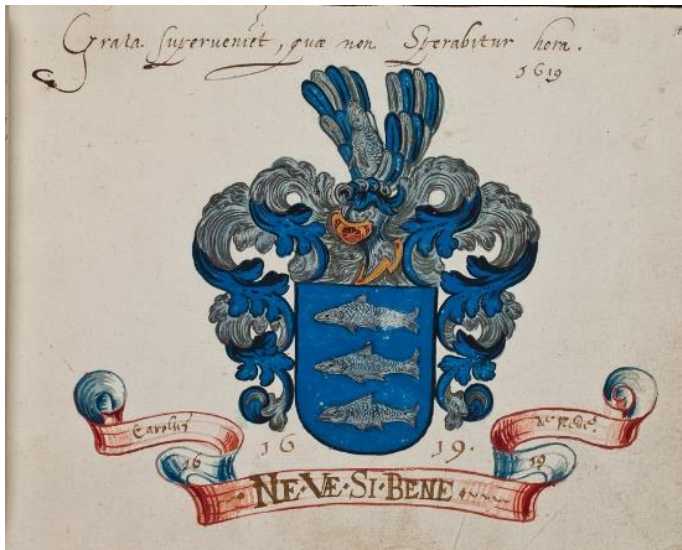 Grata superveniet, quæ non Sperabitur hora.
1619
Carolus
de
16 19.
16 19
NE·VÆ·SI·BENE